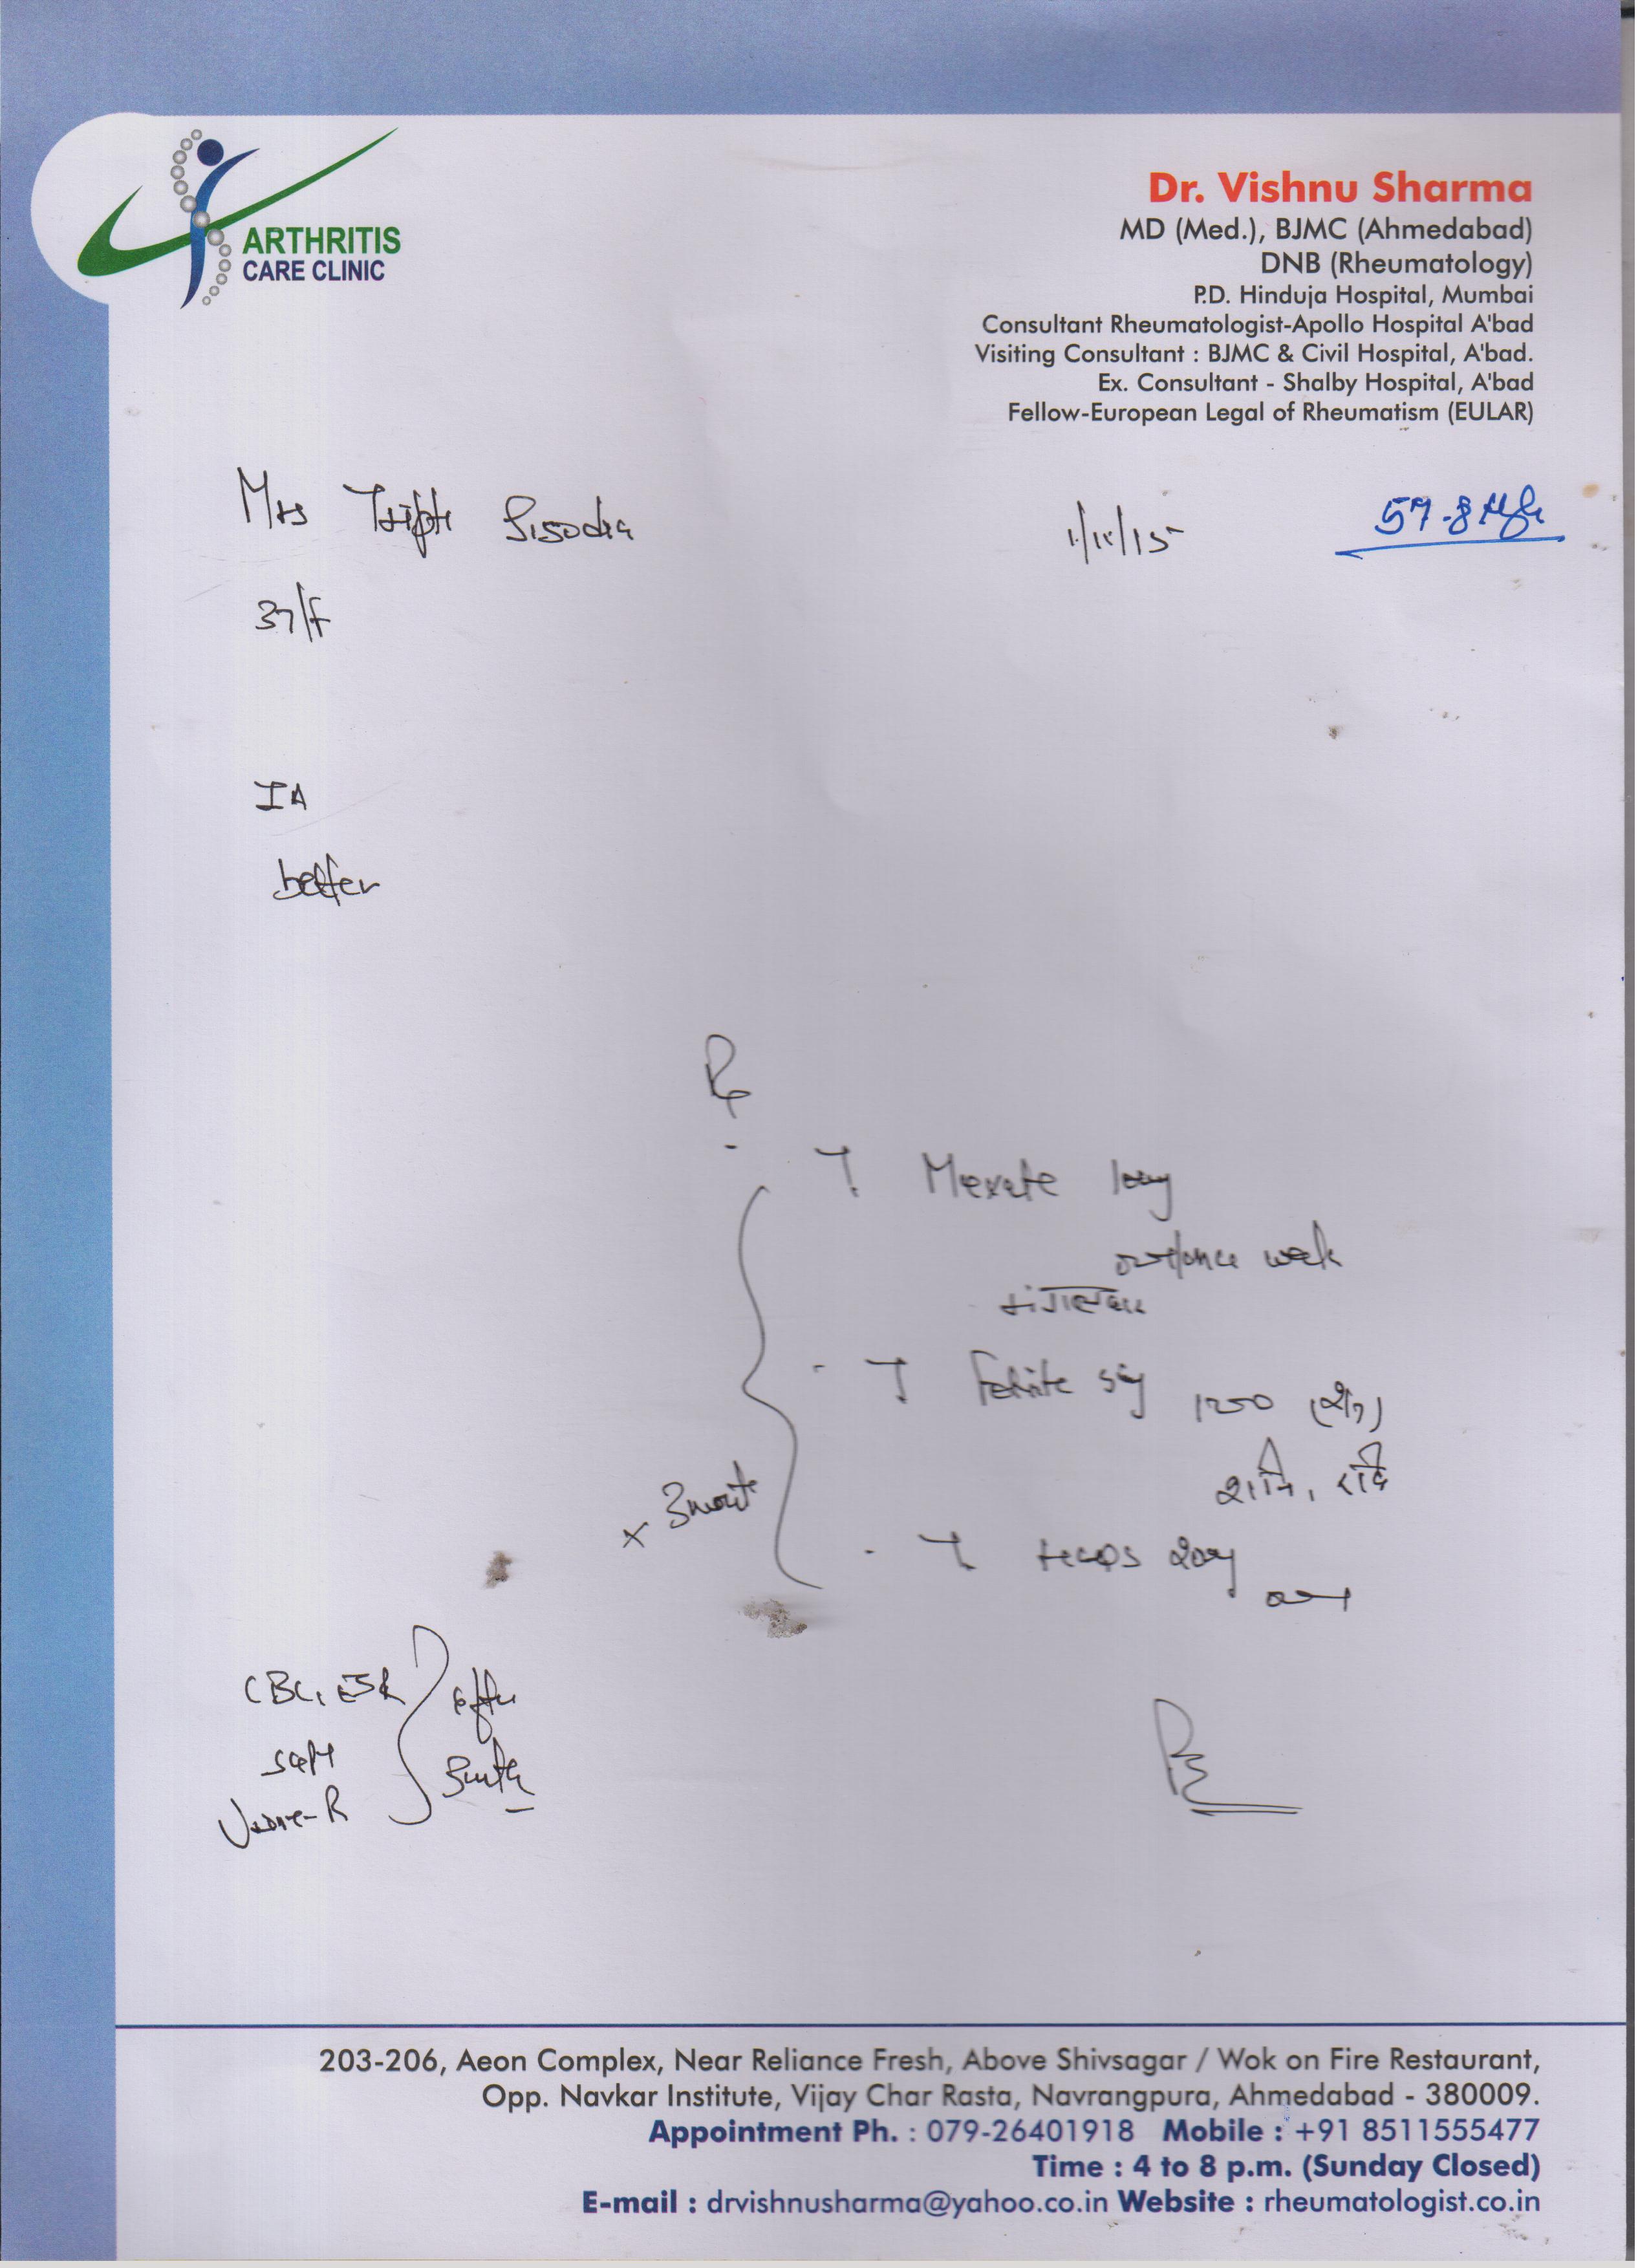 ARTHRITIS
CARE CLINIC
Dr. Vishnu Sharma
MD (Med.), BJMC (Ahmedabad)
DNB (Rheumatology)
P.D. Hinduja Hospital, Mumbai
Consultant Rheumatologist-Apollo Hospital A'bad
Visiting Consultant : BJMC & Civil Hospital, A'bad.
Ex. Consultant - Shalby Hospital, A'bad
Fellow-European Legal of Rheumatism (EULAR)
Mrs Tripti Sisodia
1/11/15
37/f
IA
better
Rx
T Mexate
once week
T
x 3 month
T 20mg
CBC, ESR
after
Urine-R
203-206, Aeon Complex, Near Reliance Fresh, Above Shivsagar / Wok on Fire Restaurant,
Opp. Navkar Institute, Vijay Char Rasta, Navrangpura, Ahmedabad - 380009.
Appointment Ph. : 079-26401918 Mobile : +91 8511555477
Time : 4 to 8 p.m. (Sunday Closed)
E-mail : drvishnusharma@yahoo.co.in Website : rheumatologist.co.in